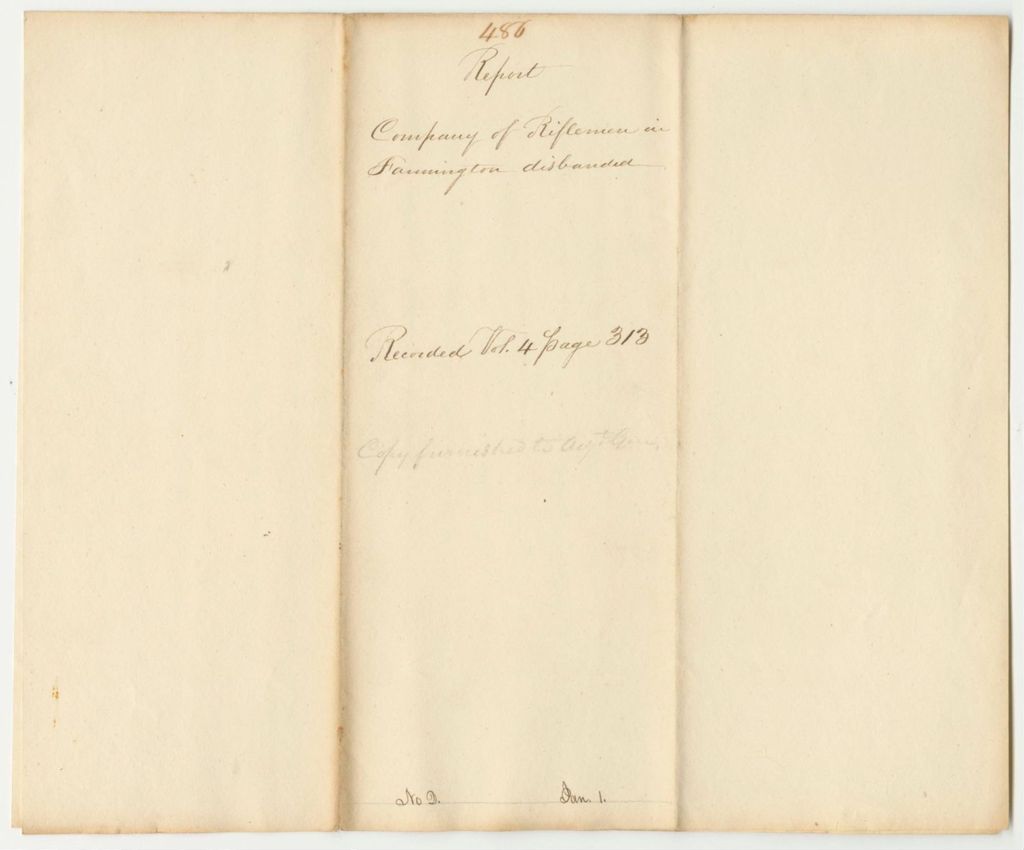 486
Report
Company of Riflemen in
Farmington disbanded
Recorded Vol. 4 page 313
Copy furnished to Adjt Gen.
No 2. Pan. 1.